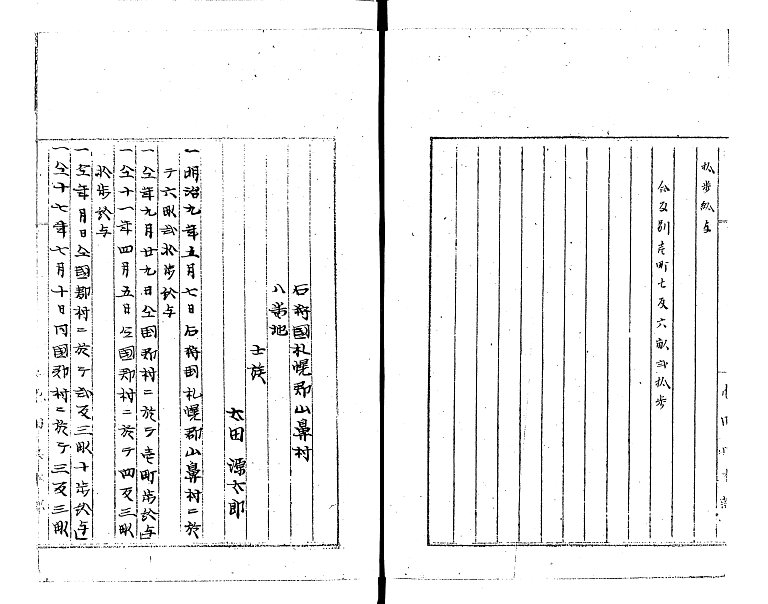 拾歩給与
合反別壱町七反六畝弐拾歩
石狩国札幌郡山鼻村
八番地
士族
太田源太郎
一明治九年五月七日石狩国札幌郡山鼻村ニ於
テ六畝弐拾歩給与
一仝年九月廿九日仝国郡村ニ於テ壱町歩給与
一仝十一年四月五日仝国郡村ニ於テ四反三畝
拾歩給与
一仝年月日仝国郡村ニ於テ弐反三畝十歩給与
一仝十七年七月十日同国郡村ニ於テ三反三畝